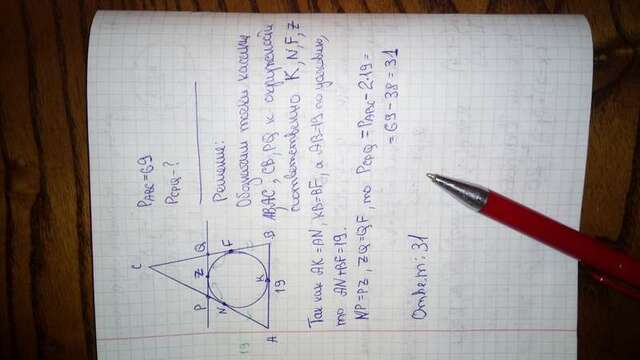 C
P_ABC = 69
P_CPQ - ?
P Z Q
Решение:
N F
Обозначим точки касания
19
AB, AC, CB, PQ к окружности
A K B
19
соответственно K, N, F, Z
Так как AK = AN, KB = BF, а AB = 19 по условию,
то AN + BF = 19.
NP = PZ, ZQ = QF, то P_CPQ = P_ABC - 2·19 =
= 69 - 38 = 31
Ответ: 31